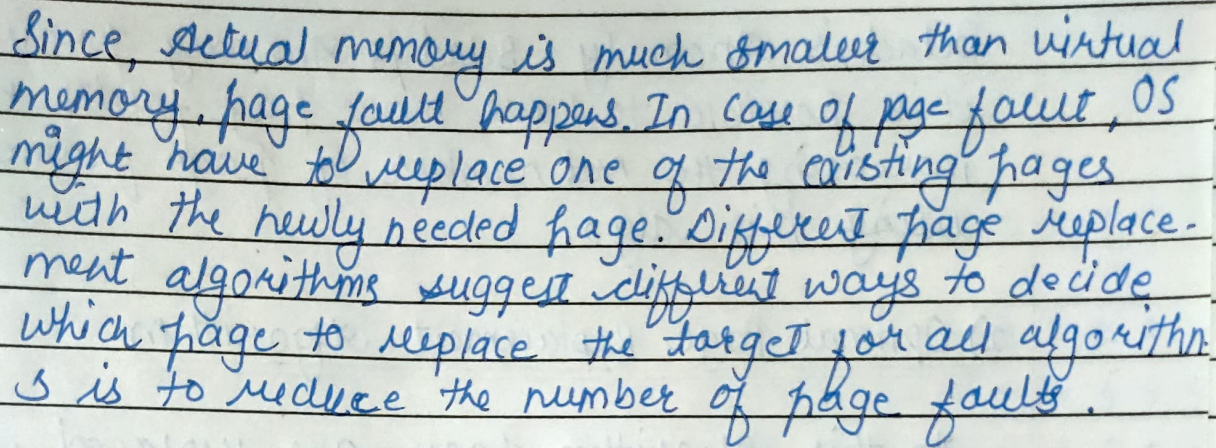 Since, Actual memory is much smaller than virtual
memory, page fault happens. In case of page fault, OS
might have to replace one of the existing pages
with the newly needed page. Different page replace-
ment algorithms suggest different ways to decide
which page to replace the target for all algorithm
s is to reduce the number of page faults.